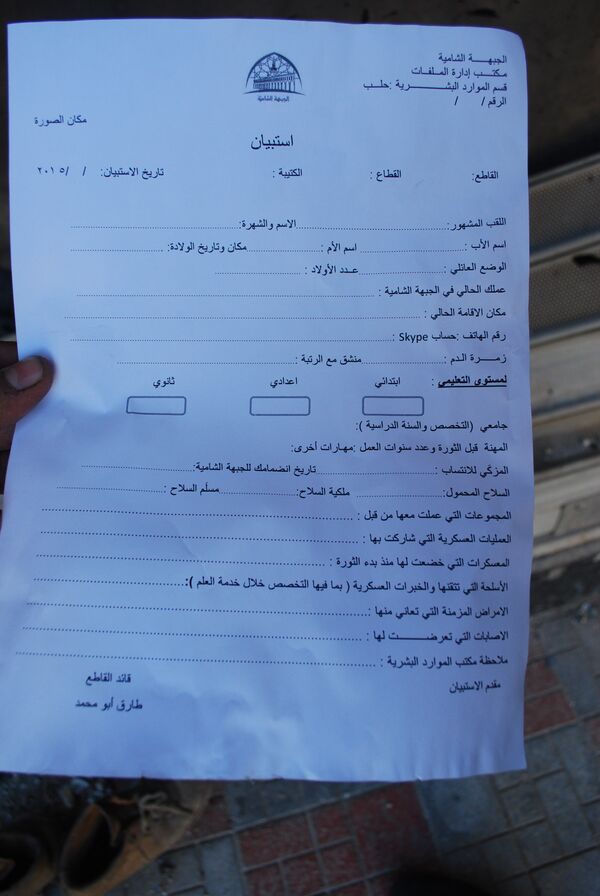 الجبهـــة الشامية
مكتـب إدارة الملـفات
قسم الموارد البشـــــرية :حلـب
الرقم / /
الجبهة الشامية
مكان الصورة
استبيان
القاطع: القطاع : الكتيبة : تاريخ الاستبيان: / /٢٠١٥
اللقب المشهور:.......................................الاسم والشهرة:.......................................
اسم الأب :.......................... اسم الأم :..........................مكان وتاريخ الولادة:..........................
الوضع العائلي :..........................عـدد الأولاد :..........................
عملك الحالي في الجبهة الشامية :..........................
مكان الاقامة الحالي :..........................
رقم الهاتف :حساب Skype :..........................
زمـــرة الـدم :..........................منشق مع الرتبة :..........................
لمستوى التعليمي : ابتدائي اعدادي ثانوي
جامعي (التخصص والسنة الدراسية ):
المهنة قبل الثورة وعدد سنوات العمل :مهارات أخرى:
المزكّي للانتساب :..........................تاريخ انضمامك للجبهة الشامية:..........................
السلاح المحمول:.......................... ملكية السلاح:..........................مسلّم السلاح :..........................
المجموعات التي عملت معها من قبل :..........................
العمليات العسكرية التي شاركت بها :..........................
المعسكرات التي خضعت لها منذ بدء الثورة :..........................
الأسلحة التي تتقنها والخبرات العسكرية ( بما فيها التخصص خلال خدمة العلم ):..........................
الامراض المزمنة التي تعاني منها :..........................
الاصابات التي تعرضـــــــت لها :..........................
ملاحظة مكتب الموارد البشرية :..........................
مقدم الاستبيان قائد القاطع
طارق أبو محمد